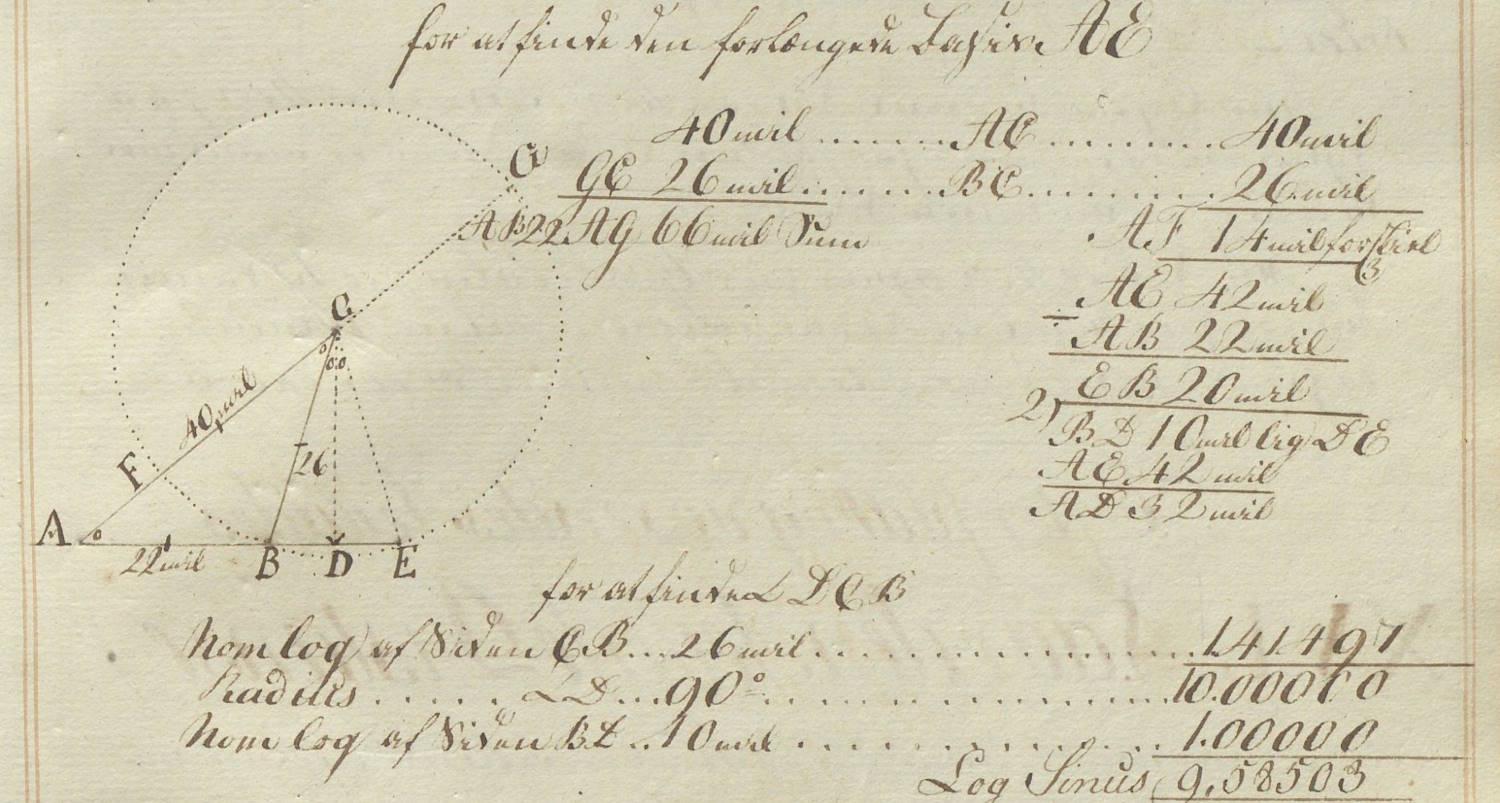 for at finde den forlængede Basis AE
40 mil ...... AC ......... 40 mil
GC 26 mil ...... BC .......... 26 mil
AB 22 AG 66 mil Sum
AF 14 mil forskiel
(3
AE 42 mil
÷ AB 22 mil
EB 20 mil
2) BD 10 mil lig DE
AE 42 mil
AD 32 mil
G
C
40 mil
26
F
A
22 mil
B D E
for at finde ∠ DCB
Nom log af Siden CB ... 26 mil .......... 1.41497
Radius ..... ∠D ... 90° .......... 10.00000
Nom log af Siden BD .. 10 mil .......... 1.00000
Log Sinus 9,58503